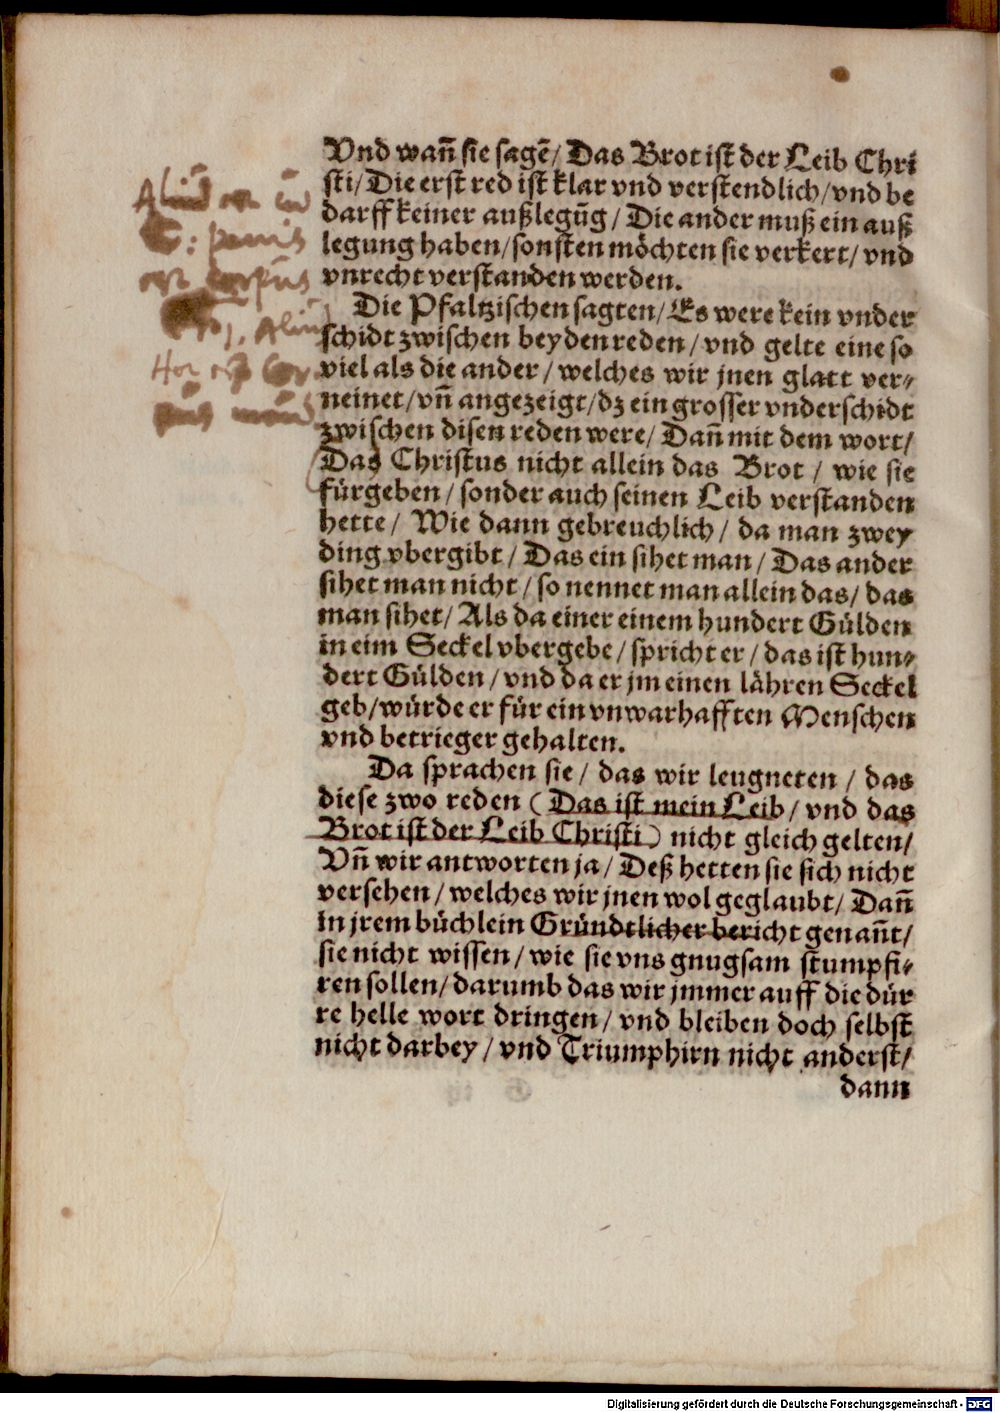 Vnd wañ sie sagẽ/ Das Brot ist der Leib Chri
sti/ Die erst red ist klar vnd verstendlich/ vnd be
darff keiner außlegũg/ Die ander muß ein auß
legung haben/ sonsten möchten sie verkert/ vnd
vnrecht verstanden werden.
Die Pfaltzischen sagten/ Es were kein vnder
schidt zwischen beyden reden/ vnd gelte eine so
viel als die ander/ welches wir jnen glatt ver-
neinet/ vñ angezeigt/ dz ein grosser vnderschidt
zwischen disen reden were/ Dañ mit dem wort/
Das Christus nicht allein das Brot/ wie sie
fürgeben/ sonder auch seinen Leib verstanden
hette/ Wie dann gebreuchlich/ da man zwey
ding vbergibt/ Das ein sihet man/ Das ander
sihet man nicht/ so nennet man allein das/ das
man sihet/ Als da einer einem hundert Gülden
in eim Seckel vbergebe/ spricht er/ das ist hun-
dert Gülden/ vnd da er jm einen lähren Seckel
geb/ würde er für ein vnwarhafften Menschen
vnd betrieger gehalten.
Da sprachen sie/ das wir leugneten/ das
diese zwo reden (Das ist mein Leib/ vnd das
Brot ist der Leib Christi) nicht gleich gelten/
Vñ wir antworten ja/ Deß hetten sie sich nicht
versehen/ welches wir jnen wol geglaubt/ Dañ
in jrem büchlein Gründtlicher bericht genañt/
sie nicht wissen/ wie sie vns gnugsam stumpfi-
ren sollen/ darumb das wir jmmer auff die dür
re helle wort dringen/ vnd bleiben doch selbst
nicht darbey/ vnd Triumphirn nicht anderst/
dann
Digitalisierung gefördert durch die Deutsche Forschungsgemeinschaft - DFG